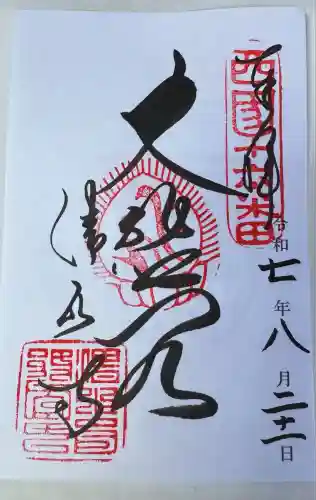 奉拝
西国十六番
令和七年八月二十一日
大悲閣
清水寺